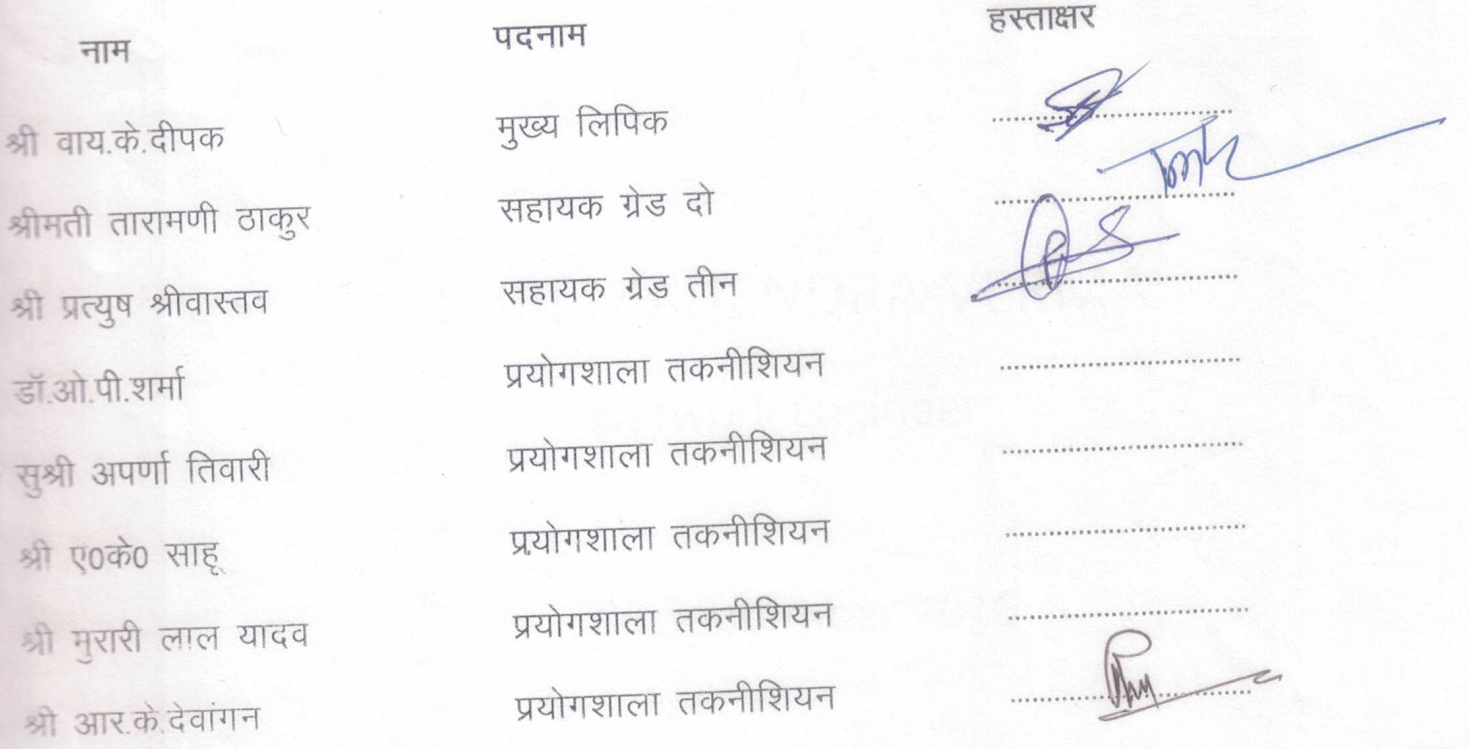 नाम पदनाम हस्ताक्षर
श्री वाय.के.दीपक मुख्य लिपिक ..............................
श्रीमती तारामणी ठाकुर सहायक ग्रेड दो ..............................
श्री प्रत्युष श्रीवास्तव सहायक ग्रेड तीन ..............................
डॉ.ओ.पी.शर्मा प्रयोगशाला तकनीशियन ..............................
सुश्री अपर्णा तिवारी प्रयोगशाला तकनीशियन ..............................
श्री ए0के0 साहू प्रयोगशाला तकनीशियन ..............................
श्री मुरारी लाल यादव प्रयोगशाला तकनीशियन ..............................
श्री आर.के.देवांगन प्रयोगशाला तकनीशियन ..............................